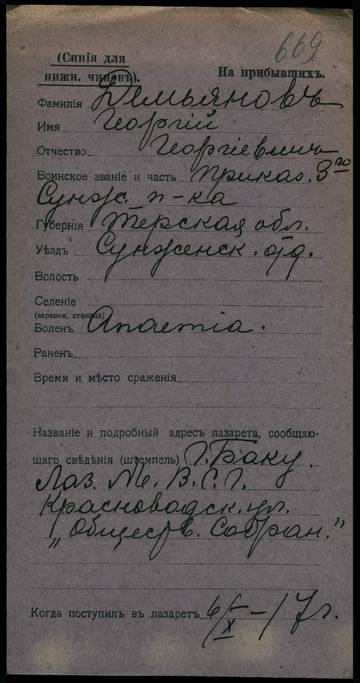 669
(Синія для
нижн. чиновъ).
На прибывшихъ.
Фамилія Демьяновъ
Имя Георгій
Отчество Георгіевичъ
Воинское званіе и часть приказ. 3го
Сунж. п-ка
Губернія Терская обл.
Уѣздъ Сунженск. отд.
Волость
Селеніе
(деревня, станица)
Боленъ Anaemia.
Раненъ
Время и мѣсто сраженія
Названіе и подробный адресъ лазарета, сообщаю-
щаго свѣдѣнія (штемпель) г. Баку.
Лаз. № В.С.Г.
Красноводск. ул.
„Обществ. Собран."
Когда поступилъ въ лазаретъ 6/X-17г.